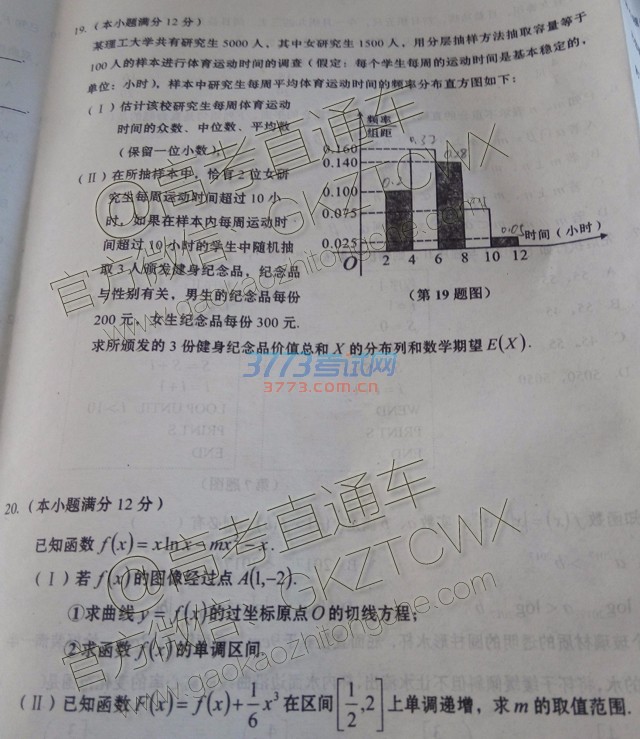 19.（本小题满分12分）
某理工大学共有研究生5000人，其中女研究生1500人，用分层抽样方法抽取容量等于
100人的样本进行体育运动时间的调查（假定：每个学生每周的运动时间是基本稳定的，
单位：小时），样本中研究生每周平均体育运动时间的频率分布直方图如下：
（Ⅰ）估计该校研究生每周体育运动
时间的众数、中位数、平均数
（保留一位小数）
（Ⅱ）在所抽样本中，恰有2位女研
究生每周运动时间超过10小
时，如果在样本内每周运动时
间超过10小时的学生中随机抽
取3人颁发健身纪念品，纪念品
与性别有关，男生的纪念品每份
200元，女生纪念品每份300元.
求所颁发的3份健身纪念品价值总和X的分布列和数学期望E(X).
频率
组距
0.160
0.140
0.100
0.075
0.025
O 2 4 6 8 10 12
时间（小时）
（第19题图）
0.05
3773考试网
3773.com.cn
@高考直通车
官方微信 GKZTCWX
www.gaokaozhitongche.com
20.（本小题满分12分）
已知函数f(x)=xlnx-mx²-x.
（Ⅰ）若f(x)的图像经过点A(1,-2).
①求曲线y=f(x)的过坐标原点O的切线方程；
②求函数f(x)的单调区间.
（Ⅱ）已知函数F(x)=f(x)+1/6x³在区间[1/2,2]上单调递增，求m的取值范围.
@高考直通车
官方微信 GKZTCWX
www.gaokaozhitongche.com